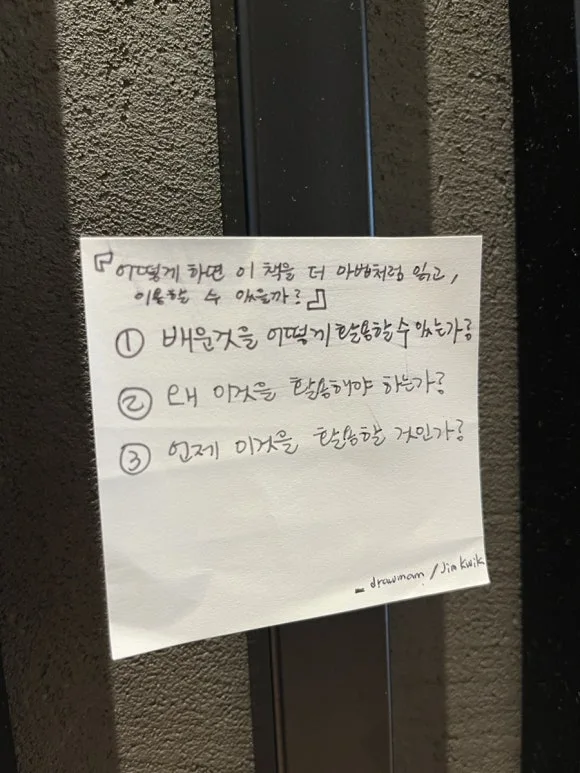 『어떻게 하면 이 책을 더 마법처럼 읽고,
이용할 수 있을까?』
① 배운것을 어떻게 활용할 수 있는가?
② 왜 이것을 활용해야 하는가?
③ 언제 이것을 활용할 것인가?
_ drawmam / Jim kwik